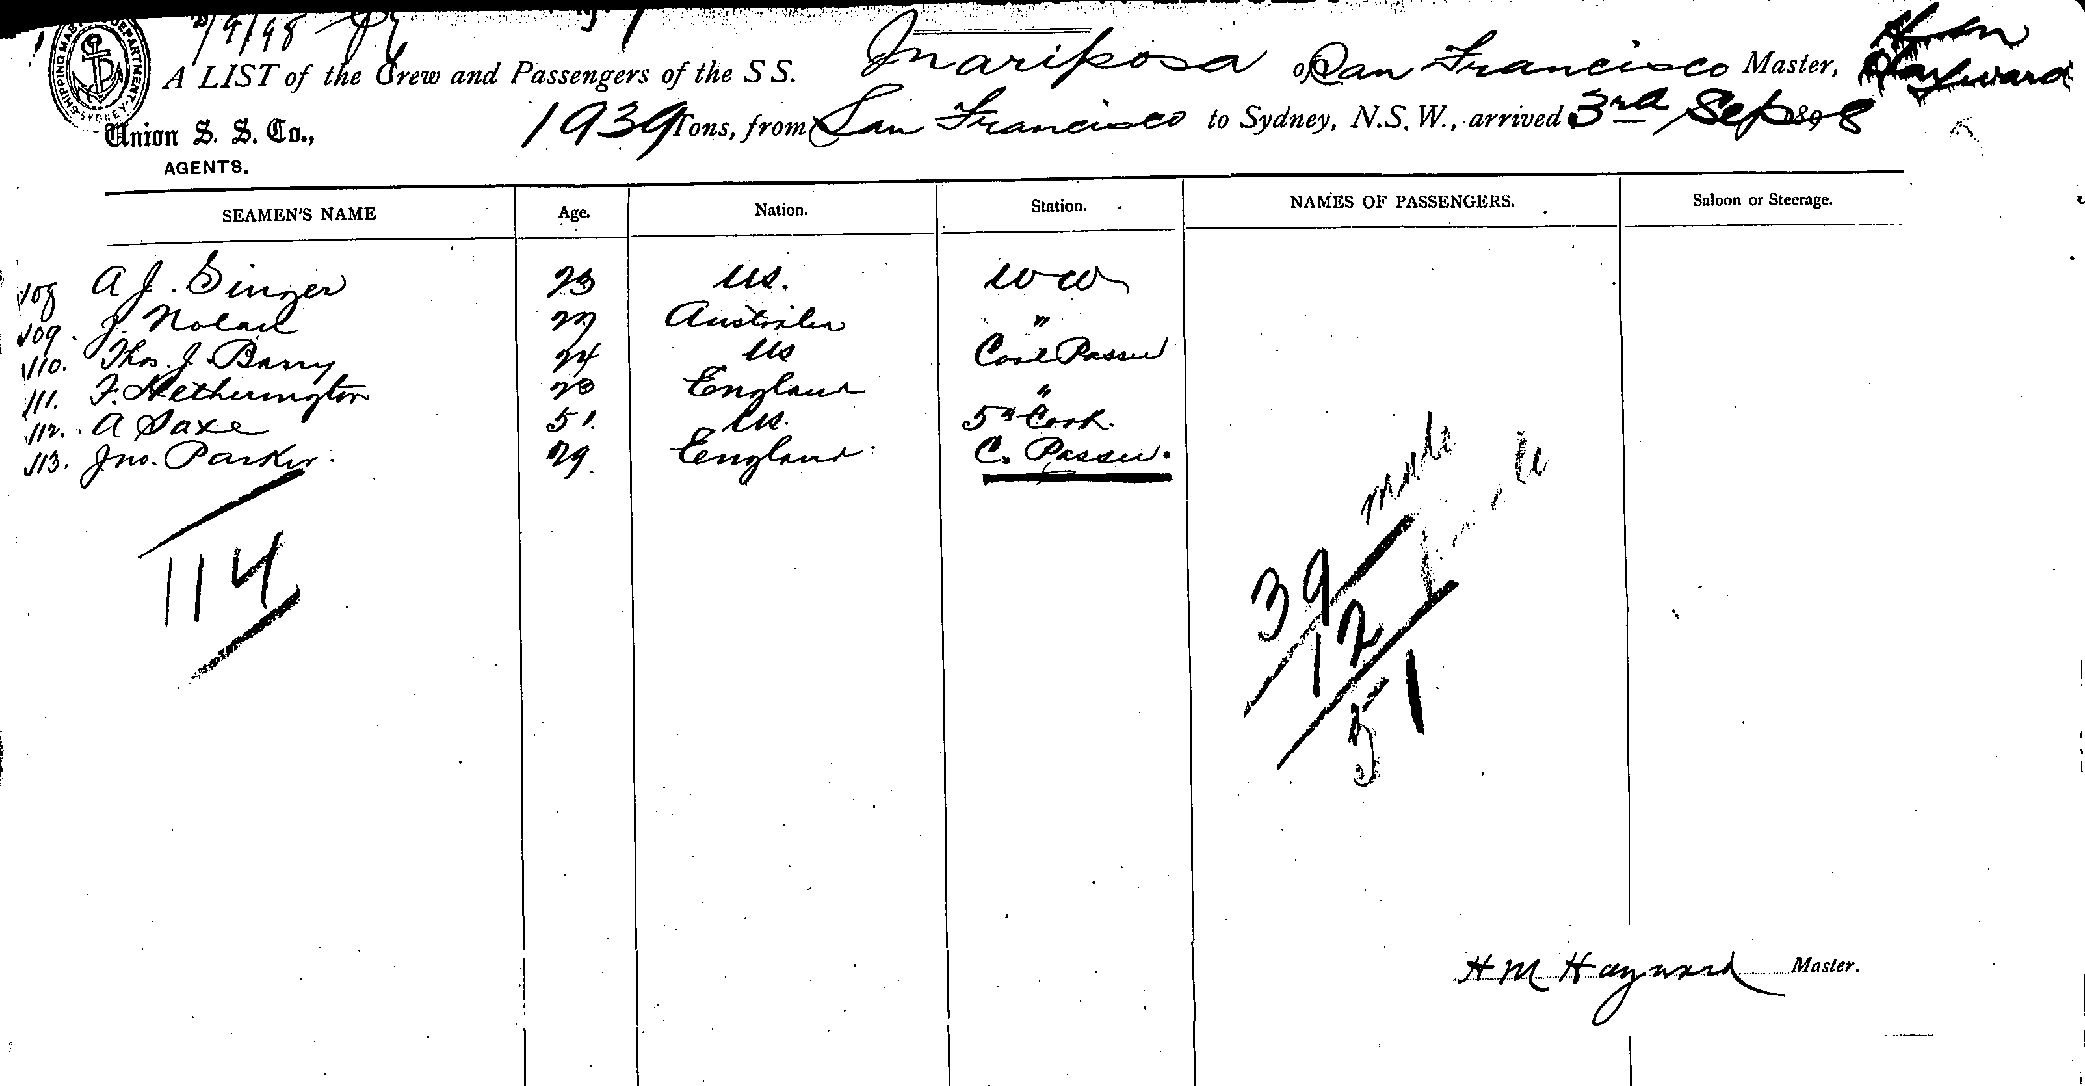 5/9/98
SHIPPING MASTER'S DEPARTMENT SYDNEY
A LIST of the Crew and Passengers of the S S. Mariposa of San Francisco Master, Hayward
Union S. S. Co., 1939 Tons, from San Francisco to Sydney, N.S.W., arrived 3rd Sep 1898
AGENTS.
SEAMEN'S NAME Age. Nation. Station. NAMES OF PASSENGERS. Saloon or Steerage.
108 A J. Singer 23 US. W W
109. J. Nolan 27 Australia "
110. Thos. J. Barry 24 US Coal Passer
111. F. Hetherington 28 England "
112. A Saxe 51. US. 5th Cook.
113. Jno. Parker. 29. England C. Passer.
114
39 male
12 female
51
H M Hayward Master.